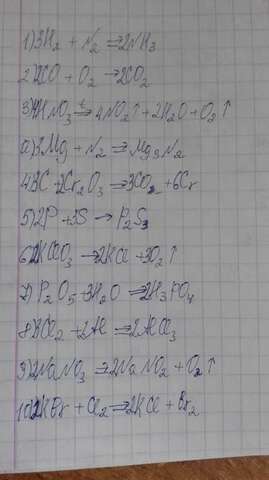 1) 3H₂ + N₂ ⇒ 2NH₃
2) 2CO + O₂ → 2CO₂
3) 4HNO₃ →ᵗ 4NO₂↑ + 2H₂O + O₂↑
а) 3Mg + N₂ ⇒ Mg₃N₂
4) 3C + 2Cr₂O₃ ⇒ 3CO₂ + 6Cr
5) 2P + 3S → P₂S₃
6) 2KClO₃ → 2KCl + 3O₂↑
7) P₂O₅ + 3H₂O ⇒ 2H₃PO₄
8) 3Cl₂ + 2Al ⇒ 2AlCl₃
9) 2NaNO₃ ⇒ 2NaNO₂ + O₂↑
10) 2KBr + Cl₂ ⇒ 2KCl + Br₂